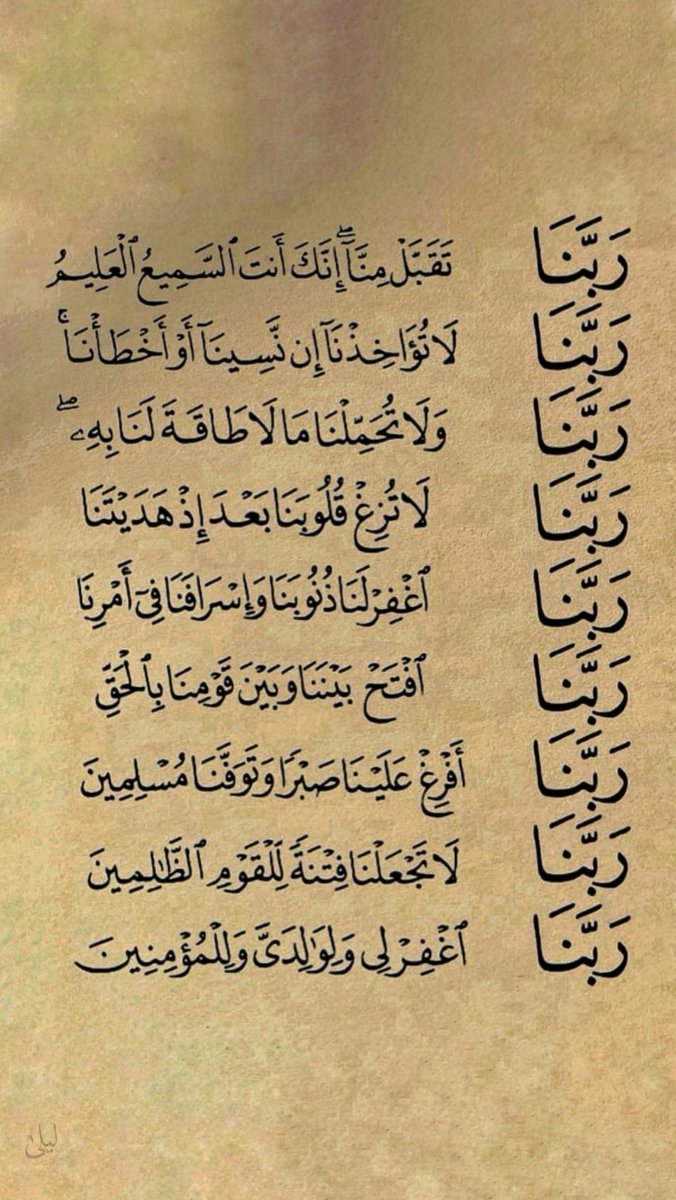 رَبَّنَا تَقَبَّلْ مِنَّآ ۖ إِنَّكَ أَنتَ ٱلسَّمِيعُ ٱلْعَلِيمُ
رَبَّنَا لَا تُؤَاخِذْنَآ إِن نَّسِينَآ أَوْ أَخْطَأْنَا ۚ
رَبَّنَا وَلَا تُحَمِّلْنَا مَا لَا طَاقَةَ لَنَا بِهِۦ ۖ
رَبَّنَا لَا تُزِغْ قُلُوبَنَا بَعْدَ إِذْ هَدَيْتَنَا
رَبَّنَا ٱغْفِرْ لَنَا ذُنُوبَنَا وَإِسْرَافَنَا فِىٓ أَمْرِنَا
رَبَّنَا ٱفْتَحْ بَيْنَنَا وَبَيْنَ قَوْمِنَا بِٱلْحَقِّ
رَبَّنَا أَفْرِغْ عَلَيْنَا صَبْرًا وَتَوَفَّنَا مُسْلِمِينَ
رَبَّنَا لَا تَجْعَلْنَا فِتْنَةً لِّلْقَوْمِ ٱلظَّٰلِمِينَ
رَبَّنَا ٱغْفِرْ لِى وَلِوَٰلِدَىَّ وَلِلْمُؤْمِنِينَ
ليلى